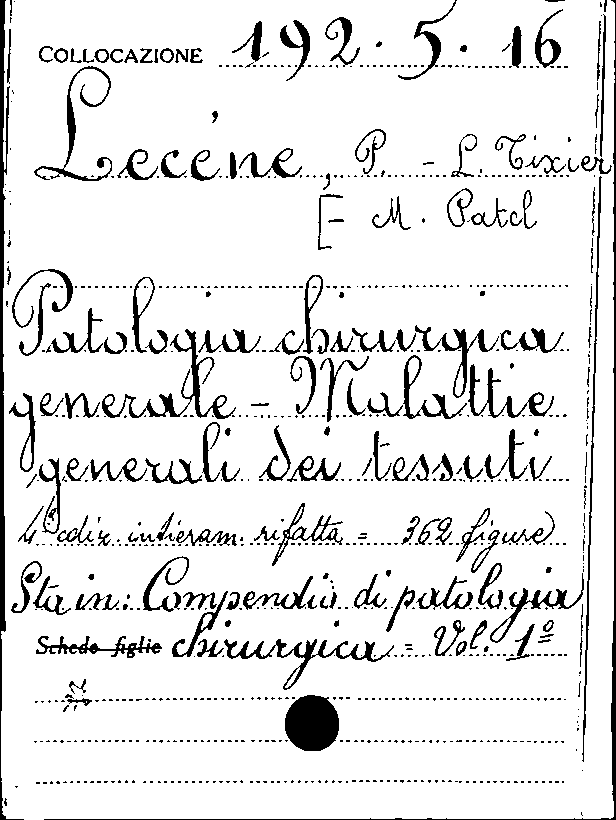 COLLOCAZIONE 192.5.16
Lecéne, P. - L. Tixier
[- M. Patel
Patologia chirurgica
generale - Malattie
generali dei tessuti
4ª ediz. intieram. rifatta = 362 figure
Sta in: Compendio di patologia
Schede figlie chirurgica = Vol. 1º